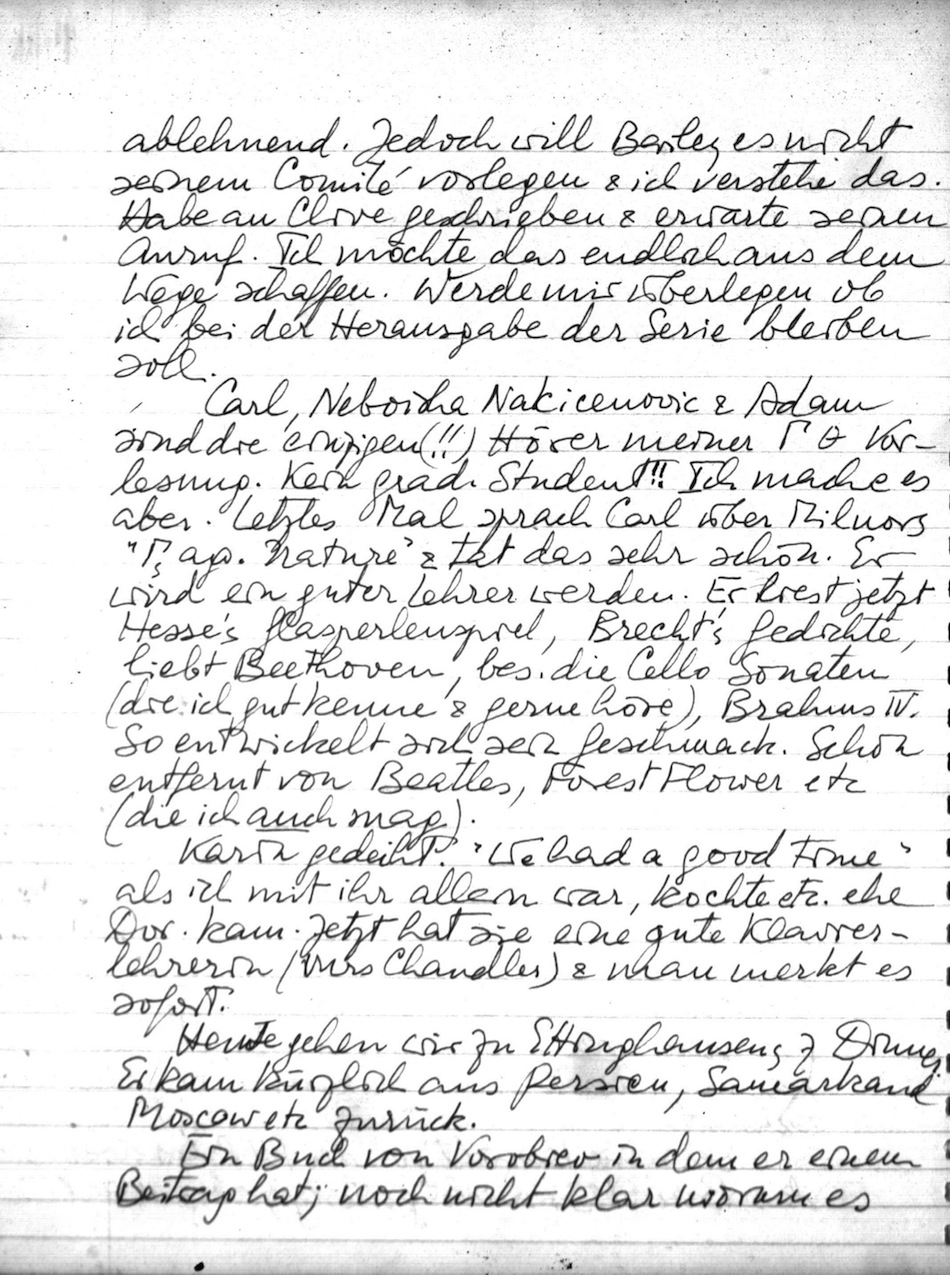 ablehnend. Jedoch will Barley es nicht
seinem Comité vorlegen & ich verstehe das.
Habe an Clive geschrieben & erwarte seinen
Anruf. Ich möchte das endlich aus dem
Wege schaffen. Werde mir überlegen ob
ich bei der Herausgabe der Serie bleiben
soll.
Carl, Neboisha Nakicenovic & Adam
sind die einzigen (!!) Hörer meiner Γ Θ Vor-
lesung. Kein grad. Student!!! Ich mache es
aber. Letztes Mal sprach Carl über Milnors
& tat das sehr schön. Er
wird ein guter Lehrer werden. Er liest jetzt
Hesse's Glasperlenspiel, Brecht's Gedichte,
liebt Beethoven, bes. die Cello Sonaten
(die ich gut kenne & gerne höre), Brahms IV.
So entwickelt sich sein Geschmack. Schon
entfernt von Beatles, Forest Flower etc
(die ich auch mag).
Karin gedeiht. "We had a good time"
als ich mit ihr allein war, kochte etc. ehe
Dor. kam. Jetzt hat sie eine gute Klavier-
lehrerin (Mrs Chandler) & man merkt es
sofort.
Heute gehen wir zu Ettinghausens z Dinner.
Er kam kürzlich aus Persien, Samarkand
Moscow etc zurück.
Ein Buch von Vorobiev in dem er einen
Beitrag hat; noch nicht klar worum es